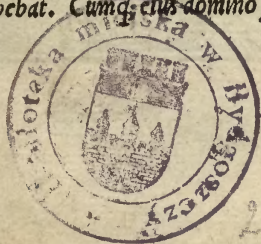 ebat. Cumq; eius domino
Biblioteka miejska w Bydgoszczy